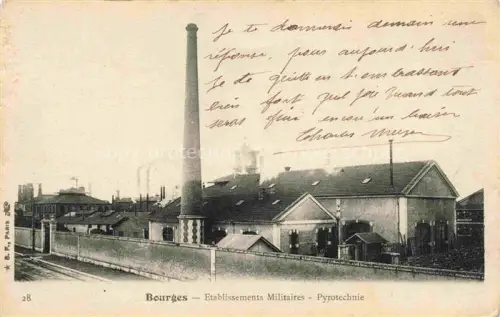 Je te demande demain une
réponse, pour aujourd'hui
Je te quitte en t'embrassant
bien fort, quel joie quand tout
sera fini encore un baiser
Charles
B. F., PARIS
28 Bourges — Etablissements Militaires - Pyrotechnie